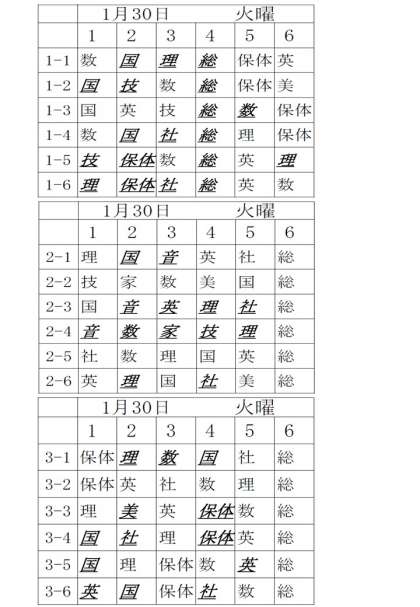 1月30日 火曜
1 2 3 4 5 6
1-1 数 国 理 総 保体 英
1-2 国 技 数 総 保体 美
1-3 国 英 技 総 数 保体
1-4 数 国 社 総 理 保体
1-5 技 保体 数 総 英 理
1-6 理 保体 社 総 英 数
1月30日 火曜
1 2 3 4 5 6
2-1 理 国 音 英 社 総
2-2 技 家 数 美 国 総
2-3 国 音 英 理 社 総
2-4 音 数 家 技 理 総
2-5 社 数 理 国 英 総
2-6 英 理 国 社 美 総
1月30日 火曜
1 2 3 4 5 6
3-1 保体 理 数 国 社 総
3-2 保体 英 社 数 理 総
3-3 理 美 英 保体 数 総
3-4 国 社 理 保体 英 総
3-5 国 理 保体 数 英 総
3-6 英 国 保体 社 数 総